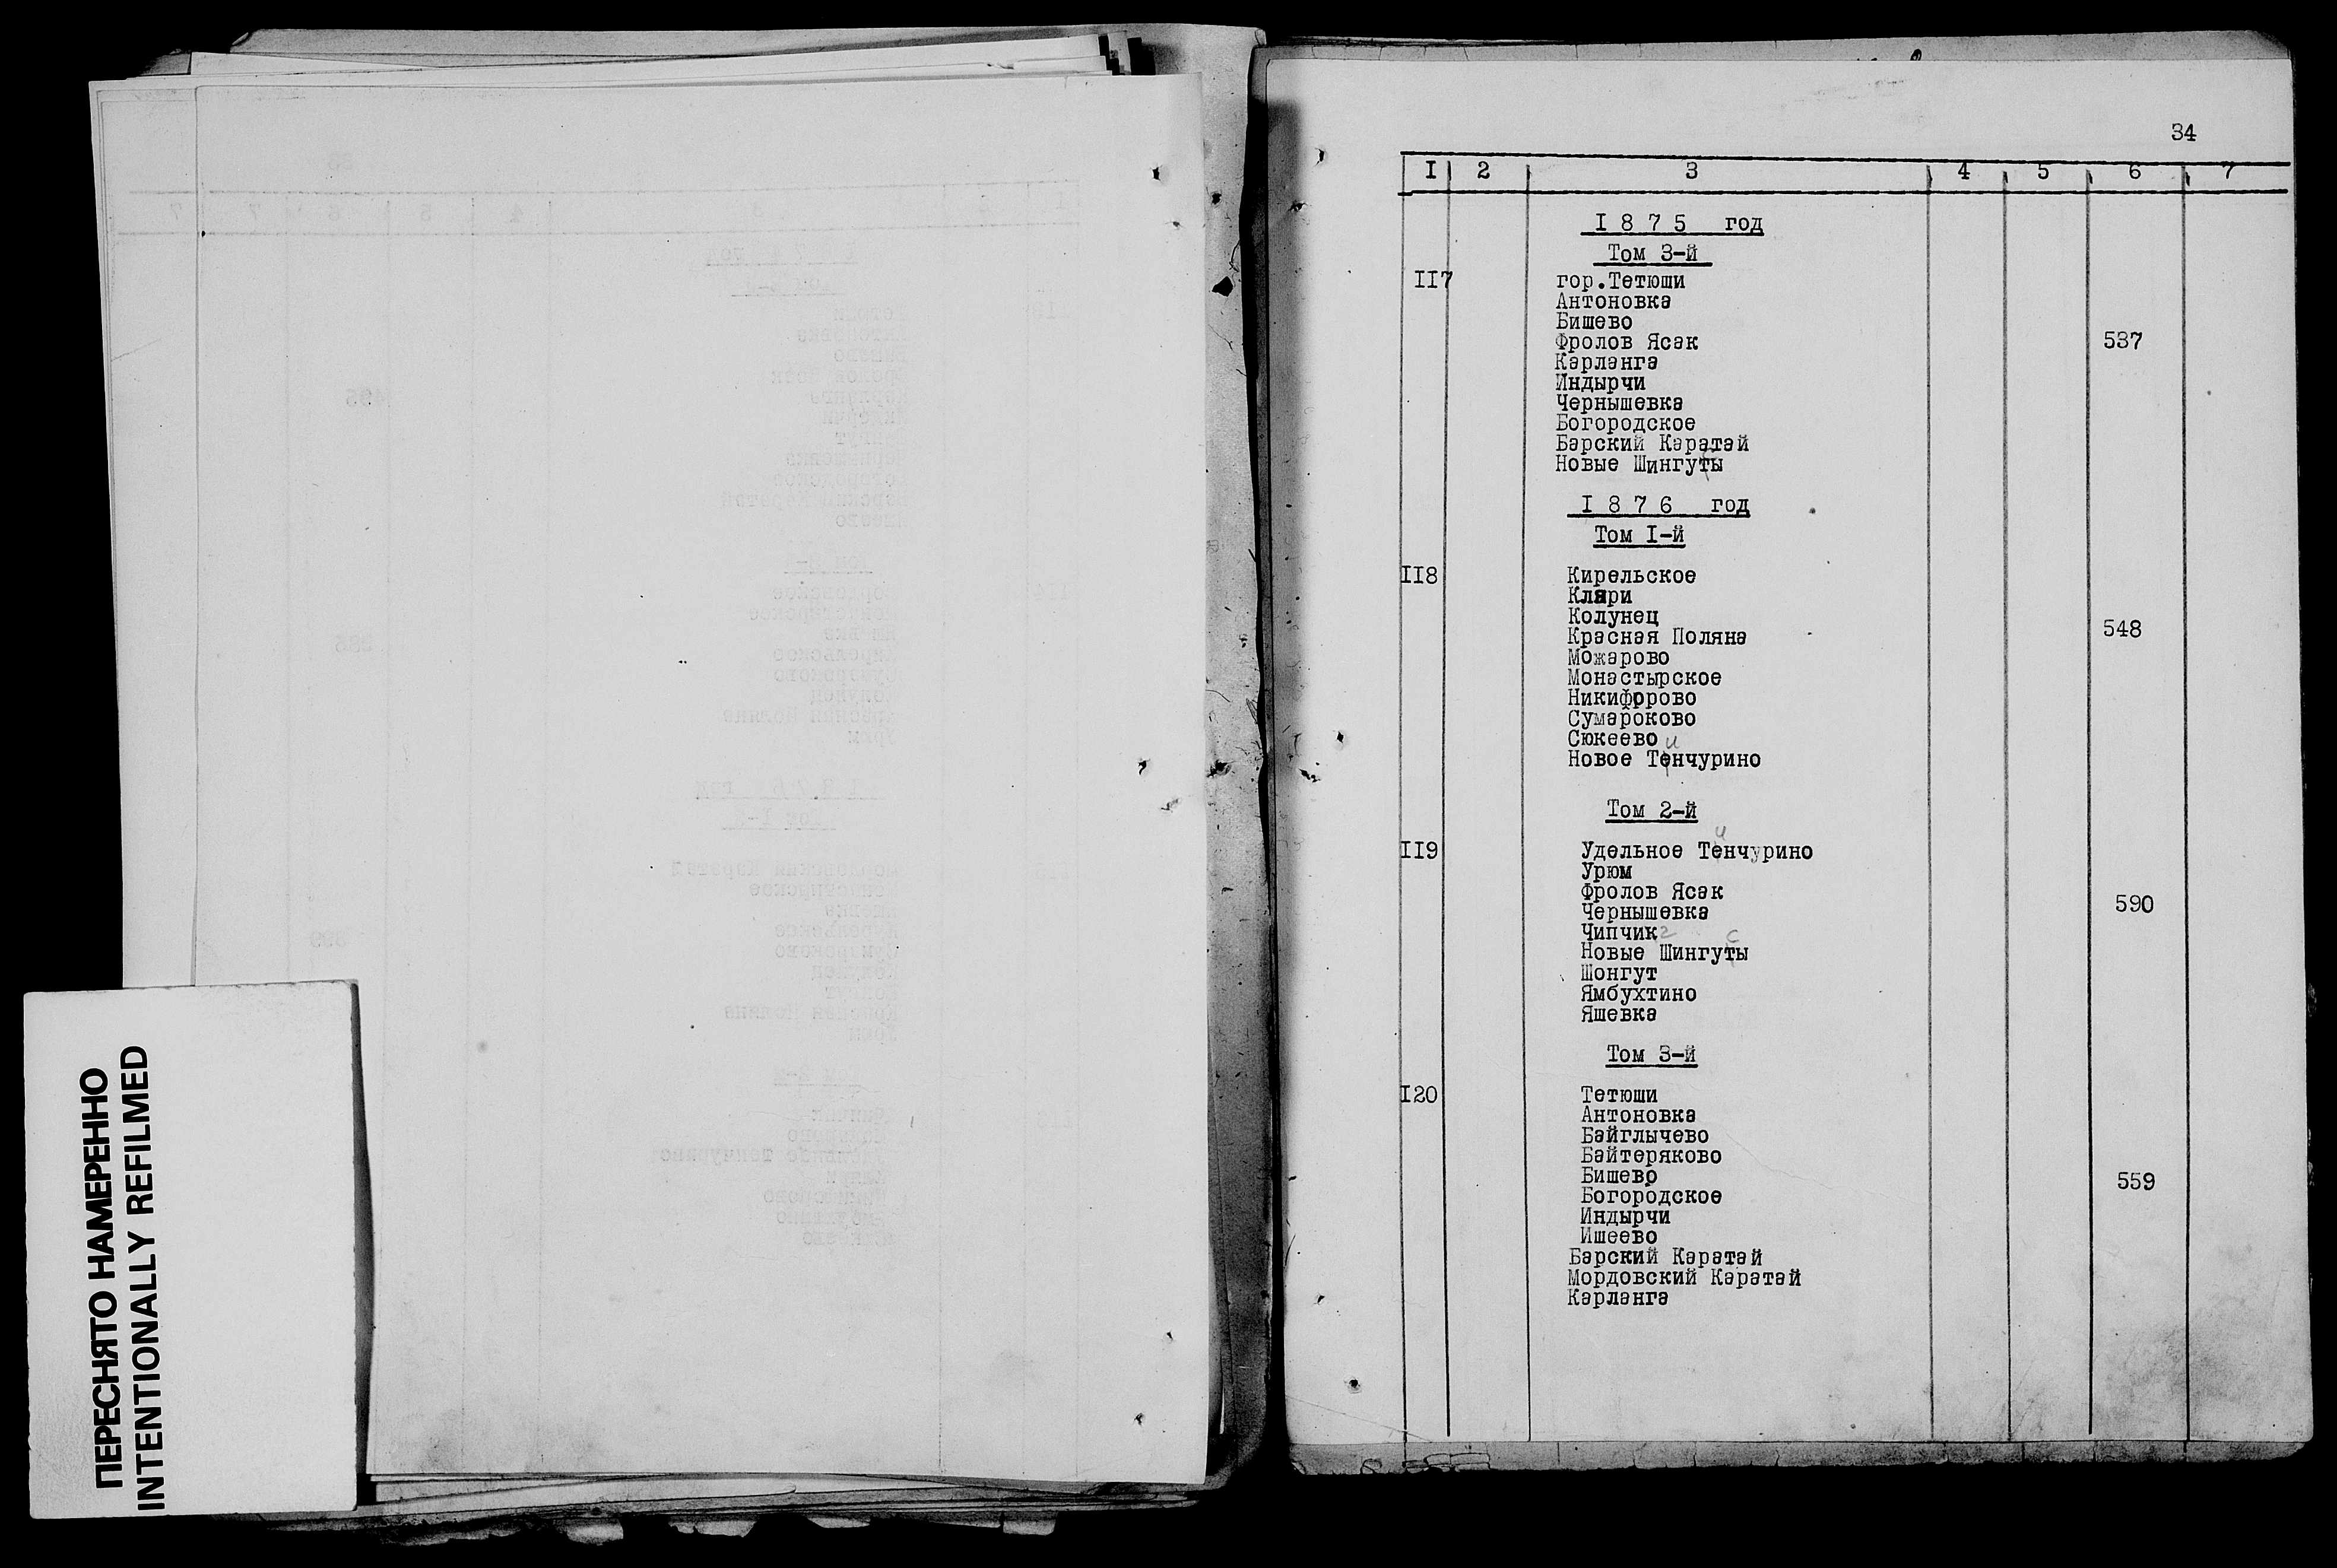 ПЕРЕСНЯТО НАМЕРЕННО
INTENTIONALLY REFILMED
34
I 2 3 4 5 6 7
I875 год
Том 3-й
II7 гор.Тетюши
Антоновка
Бишево
Фролов Ясак 537
Карланга
Индырчи
Чернышевка
Богородское
Барский Каратай
Новые Шингуты
I876 год
Том I-й
II8 Кирельское
Кляри
Колунец
Красная Поляна 548
Можарово
Монастырское
Никифорово
Сумароково
Сюкеево
Новое Тенчурино
Том 2-й
II9 Удельное Тенчурино
Урюм
Фролов Ясак
Чернышевка 590
Чипчик
Новые Шингуты
Шонгут
Ямбухтино
Яшевка
Том 3-й
I20 Тетюши
Антоновка
Байглычево
Байтеряково
Бишево 559
Богородское
Индырчи
Ишеево
Барский Каратай
Мордовский Каратай
Карланга